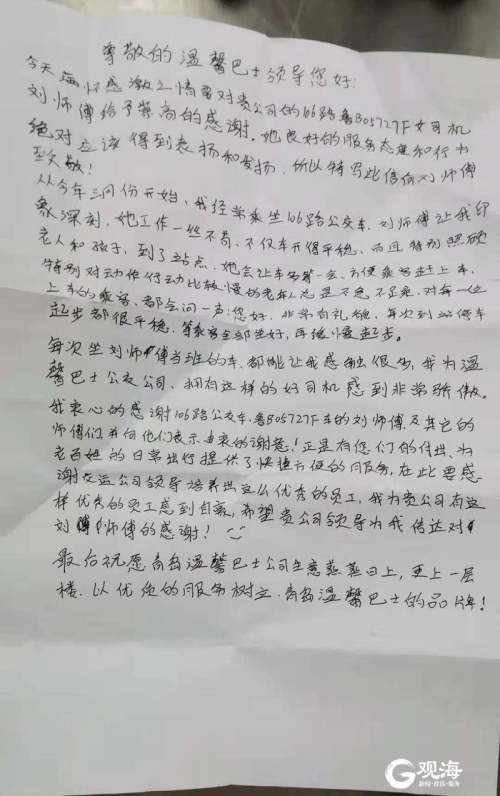 尊敬的温馨巴士领导您好:
今天满怀感激之情要对贵公司的106路鲁B05727F女司机
刘师傅给予崇高的感谢。她良好的服务态度和行为
绝对应该得到表扬和发扬,所以特写此信向刘师傅
致敬!
从今年三月份开始,我经常乘坐106路公交车,刘师傅让我印
象深刻,她工作一丝不苟,不仅车开得平稳,而且特别照顾
老人和孩子,到了站点,她会让车多等一会,方便乘客赶上车,
特别对动作行动比较慢的老年人总是不急不躁,对每一位
上车的乘客,都会问一声:您好,非常有礼貌,每次到站停车
起步都很平稳,等乘客全部坐好,再缓慢起步。
每次坐刘师傅当班的车,都能让我感触很多,我为温
馨巴士公交公司,拥有这样的好司机感到非常骄傲。
我衷心的感谢106路公交车,鲁B05727F车的刘师傅及其它的
师傅们,并向他们表示由衷的谢意!正是有您们的付出,为
老百姓的日常出行提供了快捷方便的服务,在此要感
谢公司领导培养出这么优秀的员工,我为贵公司有这
样优秀的员工感到自豪,希望贵公司领导为我传达对
刘师傅的感谢!
最后祝愿青岛温馨巴士公司生意蒸蒸日上,更上一层
楼,以优质的服务树立,青岛温馨巴士的品牌!
观海
新闻·政务·服务